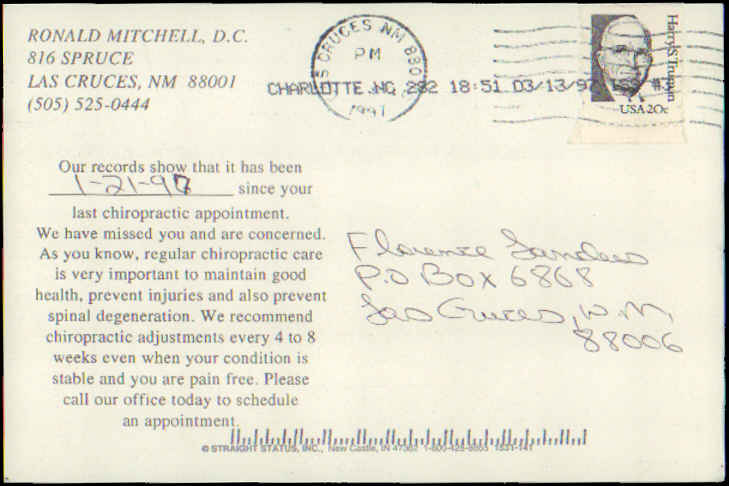 RONALD MITCHELL, D.C.
816 SPRUCE
LAS CRUCES, NM 88001
(505) 525-0444
S CRUCES NM 880
PM
1997
CHARLOTTE NC 282 18:51 03/13/97 #
Harry S Truman
USA 20c
Our records show that it has been
1-21-97 since your
last chiropractic appointment.
We have missed you and are concerned.
As you know, regular chiropractic care
is very important to maintain good
health, prevent injuries and also prevent
spinal degeneration. We recommend
chiropractic adjustments every 4 to 8
weeks even when your condition is
stable and you are pain free. Please
call our office today to schedule
an appointment.
Florence Sanders
P.O Box 6868
Las Cruces, N.M,
88006
© STRAIGHT STATUS, INC., New Castle, IN 47362 1531-141